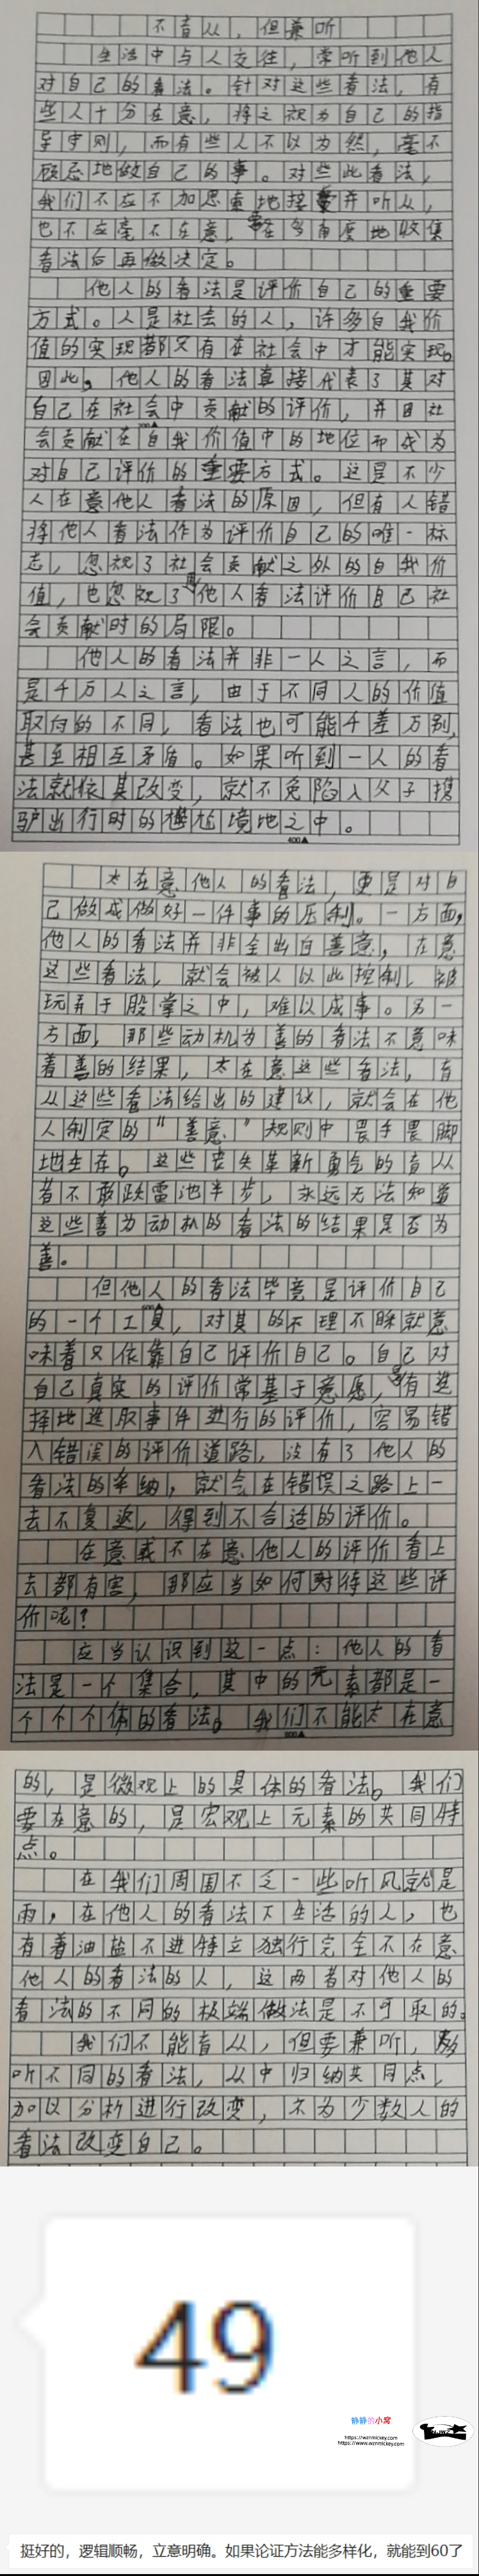 不盲从，但兼听
生活中与人交往，常听到他人
对自己的看法。针对这些看法，有
些人十分在意，将之视为自己的指
导守则，而有些人不以为然，毫不
顾忌地做自己的事。对些此看法，
我们不应不加思索地接受并听从，
也不应毫不在意，需在多角度地收集
看法后再做决定。
他人的看法是评价自己的重要
方式。人是社会的人，许多自我价
值的实现都只有在社会中才能实现。
因此，他人的看法直接代表了其对
自己在社会中贡献的评价，并因社
会贡献在自我价值中的地位而成为
对自己评价的重要方式。这是不少
人在意他人看法的原因，但有人错
将他人看法作为评价自己的唯一标
志，忽视了社会贡献之外的自我价
值，也忽视了用他人看法评价自己社
会贡献时的局限。
他人的看法并非一人之言，而
是千万人之言，由于不同人的价值
取向的不同，看法也可能千差万别，
甚至相互矛盾。如果听到一人的看
法就依其改变，就不免陷入父子携
驴出行时的尴尬境地之中。
400▲
太在意他人的看法，更是对自
己做成做好一件事的压制。一方面，
他人的看法并非全出自善意，在意
这些看法，就会被人以此控制，被
玩弄于股掌之中，难以成事。另一
方面，那些动机为善的看法不意味
着善的结果，太在意这些看法，盲
从这些看法给出的建议，就会在他
人制定的“善意”规则中畏手畏脚
地生存。这些丧失革新勇气的盲从
者不敢越雷池半步，永远无法知道
这些善为动机的看法的结果是否为
善。
但他人的看法毕竟是评价自己
的一个工具，对其的不理不睬就意
味着只依靠自己评价自己。自己对
自己真实的评价常基于意愿，是有选
择地选取事件进行的评价，容易错
入错误的评价道路，没有了他人的
看法的牵绊，就会在错误之路上一
去不复返，得到不合适的评价。
在意或不在意他人的评价看上
去都有害，那应当如何对待这些评
价呢？
应当认识到这一点：他人的看
法是一个集合，其中的元素都是一
个个个体的看法。我们不能太在意
800▲
的，是微观上的具体的看法。我们
要在意的，是宏观上元素的共同特
点。
在我们周围不乏一些听风就是
雨，在他人的看法下生活的人，也
有着油盐不进特立独行完全不在意
他人的看法的人，这两者对他人的
看法的不同的极端做法是不可取的。
我们不能盲从，但要兼听，多
听不同的看法，从中归纳共同点，
加以分析进行改变，不为少数人的
看法改变自己。
49
静静的小窝
https://wznmickey.com
https://www.wznmickey.com
挺好的，逻辑顺畅，立意明确。如果论证方法能多样化，就能到60了